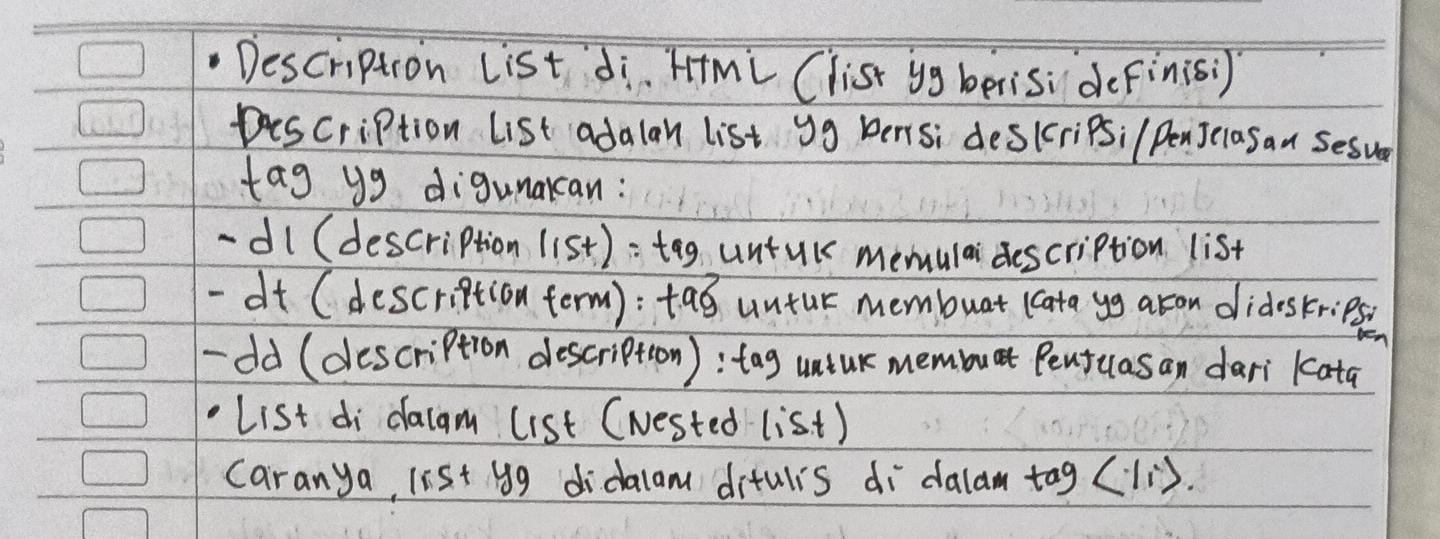 • Description List di HTML (list yg berisi definisi)
Description List adalah list yg berisi deskripsi/penjelasan sesua
tag yg digunakan :
- dl (description list) : tag untuk memulai description list
- dt (description term) : tag untuk membuat kata yg akan dideskripsi
kan
- dd (description description) : tag untuk membuat penjelasan dari kata
• List di dalam List (Nested list)
Caranya, list yg didalam ditulis di dalam tag <li>.